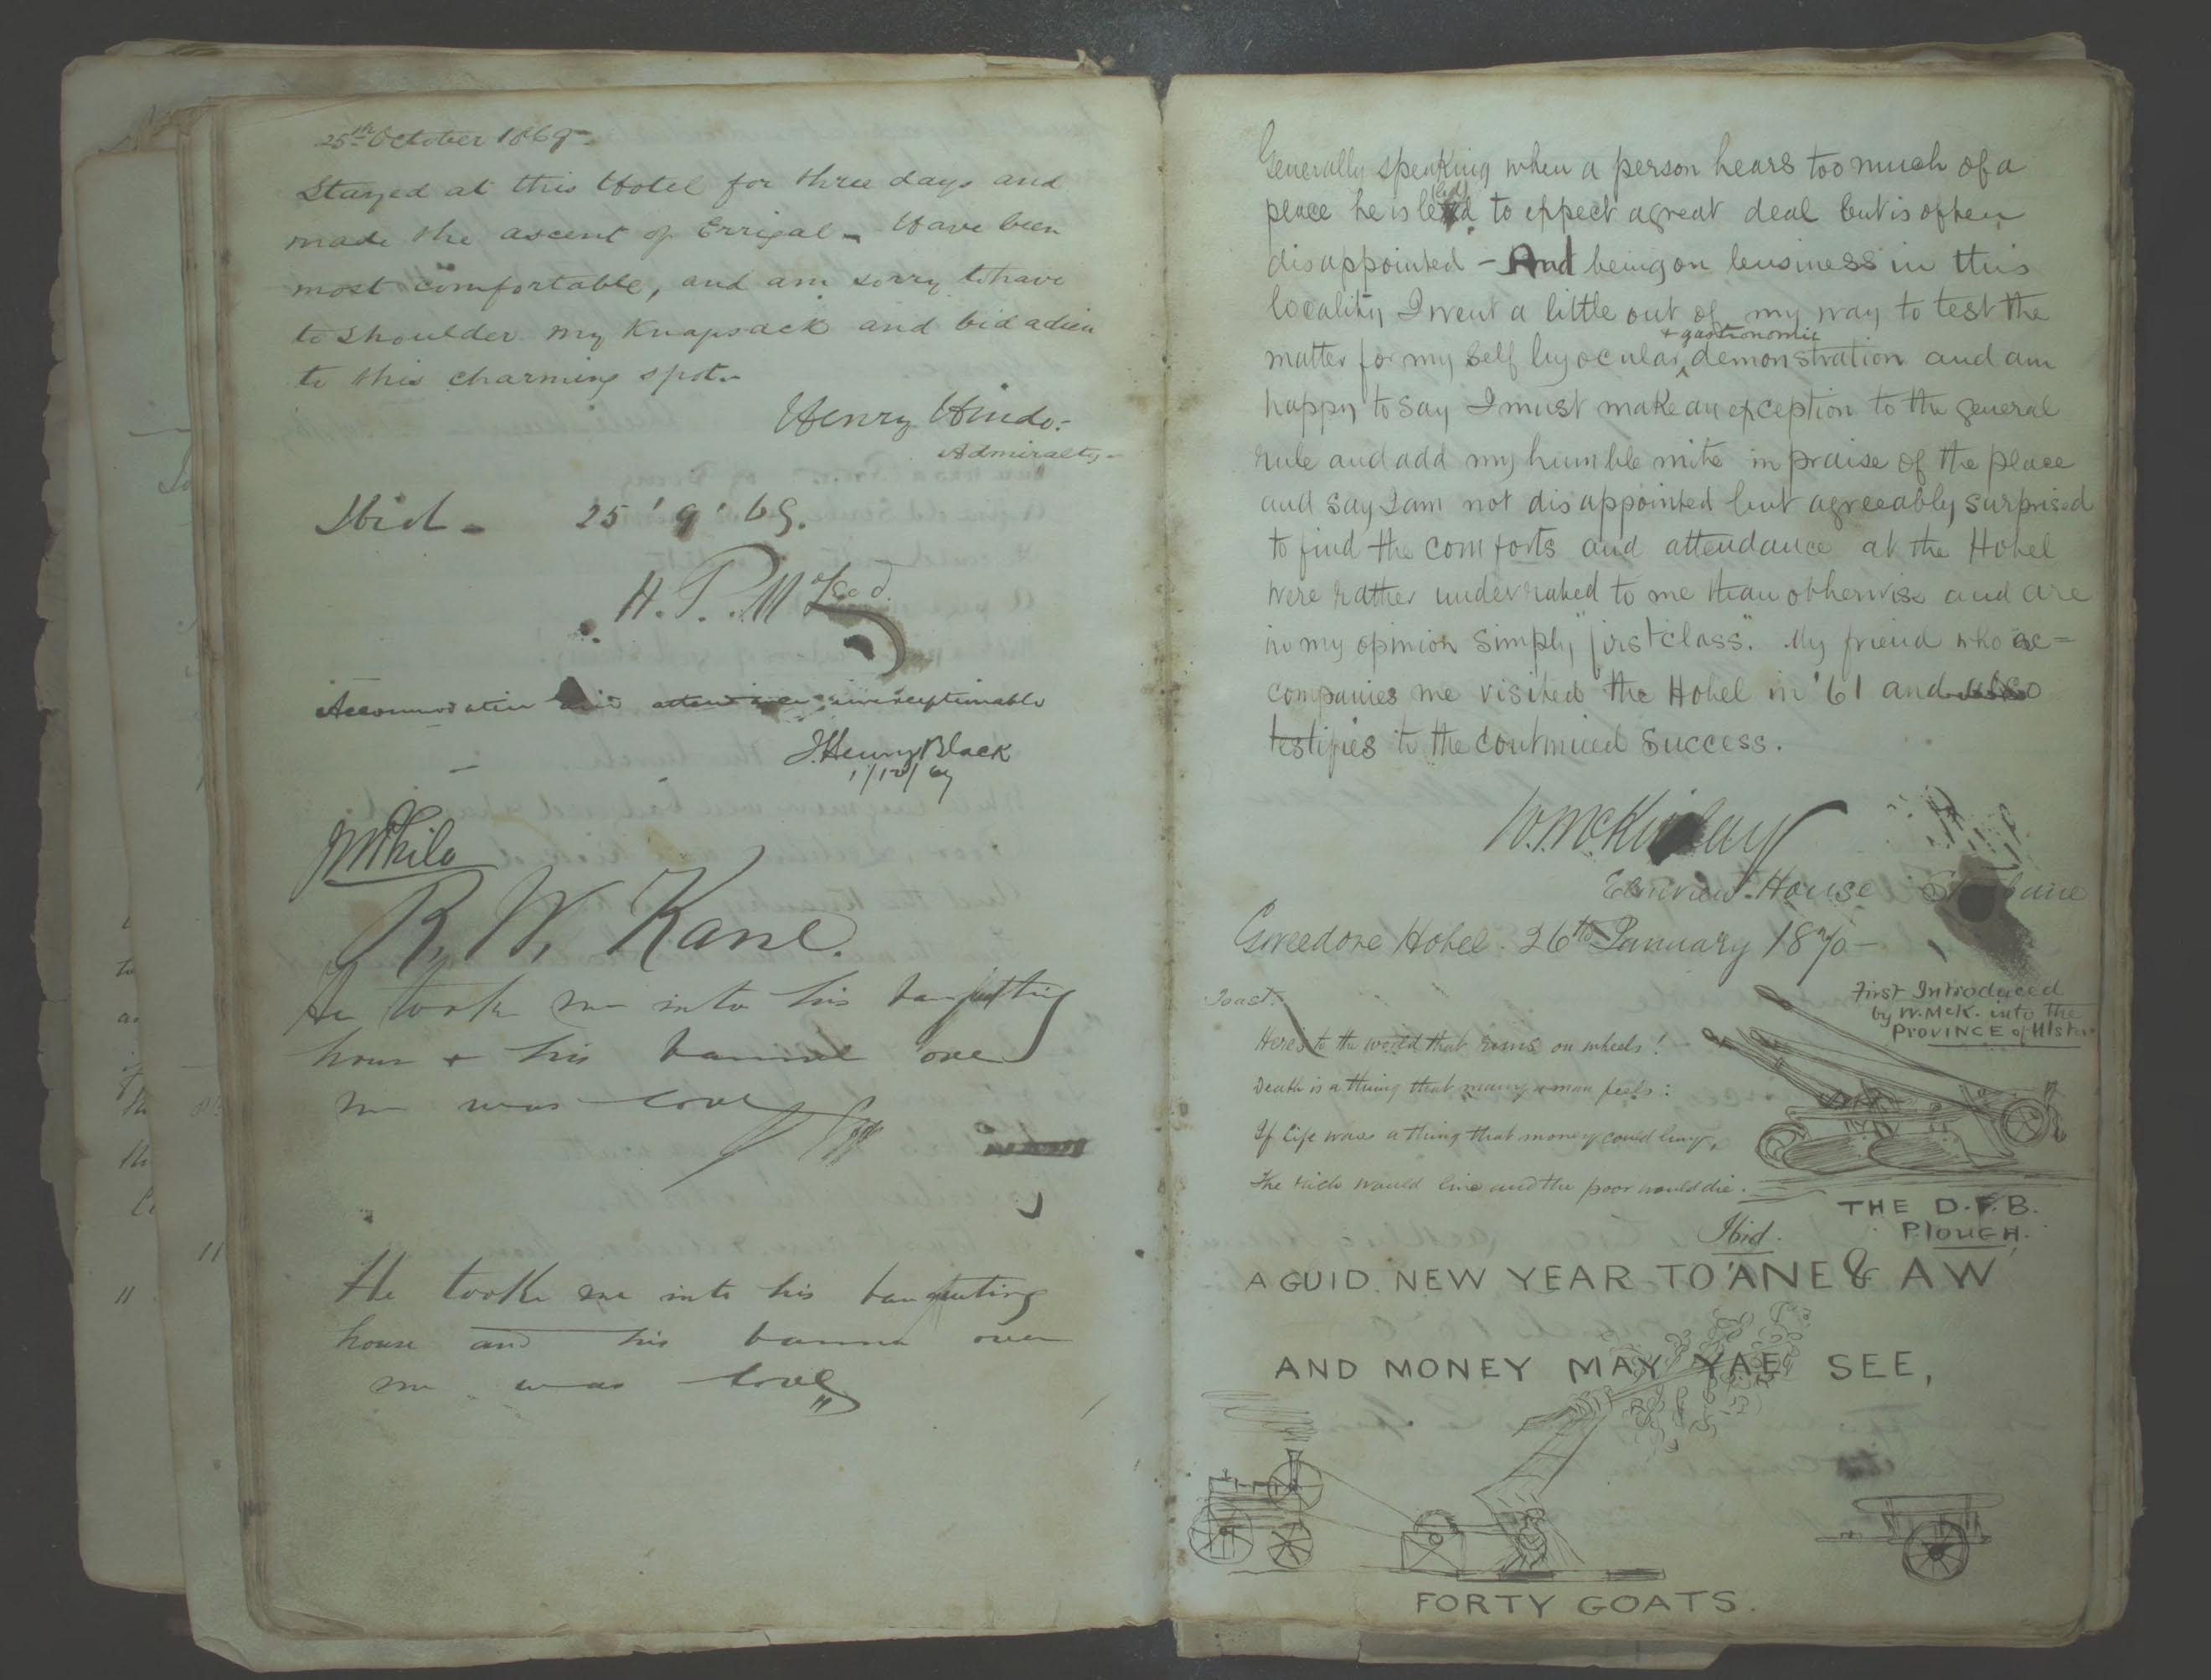 25th October 1869-
Stayed at this Hotel for three days and
made the ascent of Errigal - Have been
most comfortable, and am sorry to have
to shoulder my Knapsack and bid adieu
to this charming spot.-
Henry Hinds.-
Admiralty-
Ibid - 25 ' 9 ' 69.
H. T. McLeod.
Accommodation and attendance unexceptionable
J. Henry Black
1/12/69
R. W. Kane.
He took me into his banqueting
house + his banner over
me was love
He took me into his banqueting
house and his banner over
me was love"
Generally speaking when a person hears too much of a
place he is (led) to expect a great deal but is often
disappointed - And being on business in this
locality I went a little out of my way to test the
+ gastronomic
matter for my self by ocular ^ demonstration and am
happy to say I must make an exception to the general
rule and add my humble mite in praise of the place
and say I am not disappointed but agreeably surprised
to find the comforts and attendance at the Hotel
were rather underrated to me than otherwise and are
in my opinion simply "first class". My friend who ac=
companies me visited the Hotel in '61 and also
testifies to the continued success.
W. McKinlay
Elmview House Strabane
Gweedore Hotel - 26th January 1870-
Toast.
Here's to the world that runs on wheels!
Death is a thing that many a man feels:
If life was a thing that money could buy,
The rich would live and the poor would die.
Ibid.
First Introduced
by W. McK. into the
PROVINCE of Ulster
THE D.F.B.
PLOUGH.
A GUID NEW YEAR TO ANE & AW
AND MONEY MAY YAE SEE,
FORTY GOATS.